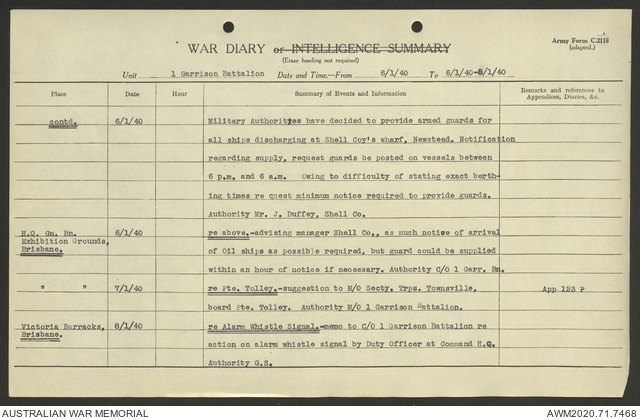 Army Form C.2118
(adapted.)
WAR DIARY or INTELLIGENCE SUMMARY
(Erase heading not required)
Unit 1 Garrison Battalion Date and Time.—From 6/1/40 To 6/1/40-8/1/40
Place Date Hour Summary of Events and Information Remarks and references to Appendices, Diaries, &c.
contd. 6/1/40 Military Authorities have decided to provide armed guards for
all ships discharging at Shell Coy's wharf, Newstead. Notification
regarding supply, request guards be posted on vessels between
6 p.m. and 6 a.m. Owing to difficulty of stating exact berth-
ing times re quest minimum notice required to provide guards.
Authority Mr. J. Duffey, Shell Co.
H.Q. Gn. Bn. 6/1/40 re above.-advising manager Shell Co,, as much notice of arrival
Exhibition Grounds, of Oil ships as possible required, but guard could be supplied
Brisbane. within an hour of notice if necessary. Authority C/O 1 Garr. Bn.
" " 7/1/40 re Pte. Tolley.-suggestion to M/O Secty. Trps. Townsville, App 123 P
board Pte. Tolley. Authority M/O 1 Garrison Battalion.
Victoria Barracks, 8/1/40 re Alarm Whistle Signal.-memo to C/O 1 Garrison Battalion re
Brisbane. action on alarm whistle signal by Duty Officer at Command H.Q.
Authority G.S.
AUSTRALIAN WAR MEMORIAL AWM2020.71.7468